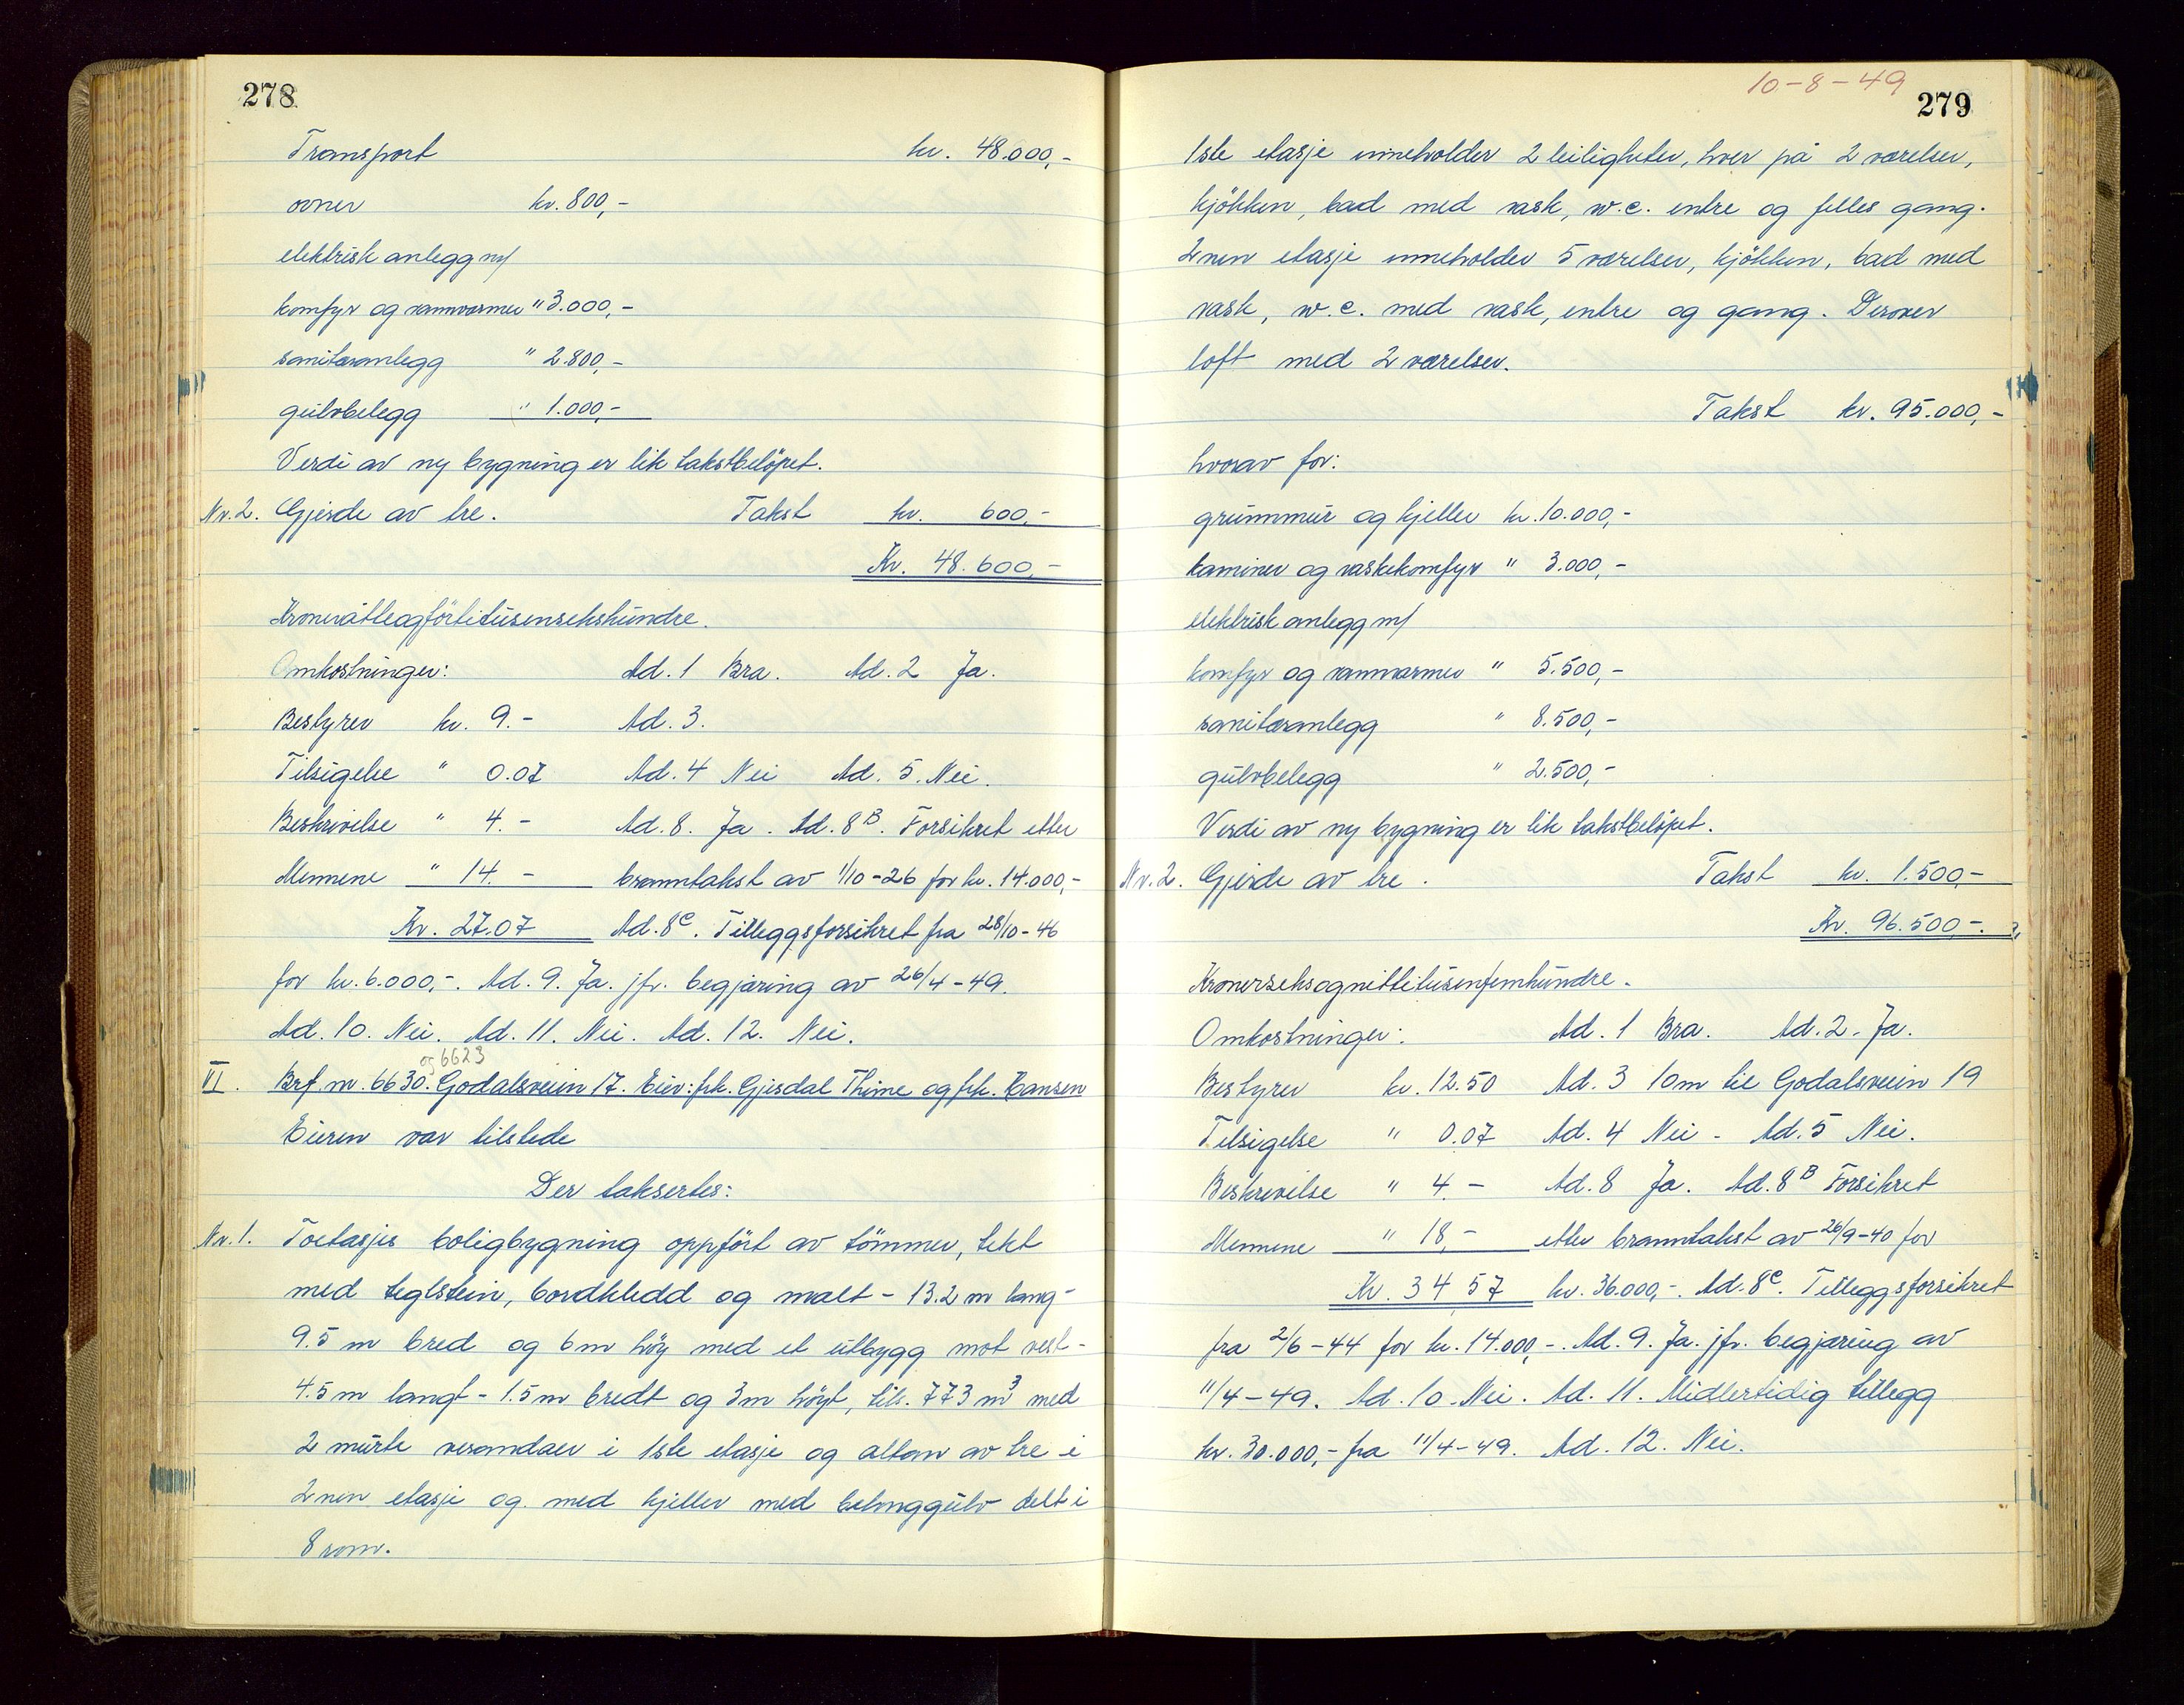 278
Transport kr. 48.000,-
ovner kr. 800,-
elektrisk anlegg m/
komfyr og vannvarmer " 3.000,-
sanitæranlegg " 2.800,-
gulvbelegg " 1.000,-
Verdi av ny bygning er lik takstbeløpet.
Nr. 2. Gjerde av tre. Takst kr. 600,-
Kr. 48.600,-
Kroneråtteogførtitusensekshundre.
Omkostninger: Ad. 1 Bra. Ad. 2 Ja.
Bestyrer kr. 9.- Ad. 3.
Tilsigelse " 0.07 Ad. 4 Nei Ad. 5. Nei.
Beskrivelse " 4.- Ad. 8. Ja. Ad. 8B. Forsikret etter
Mennene " 14.- branntakst av 1/10-26 for kr. 14.000,-
Kr. 27.07 Ad. 8C. Tilleggsforsikret fra 28/10-46
for kr. 6.000,-. Ad. 9. Ja. jfr. begjæring av 26/4-49.
Ad. 10. Nei. Ad. 11. Nei. Ad. 12. Nei.
og 6623
VI. Brf. nr. 6630. Godalsveien 17. Eier: frk. Gjesdal Thime og frk. Hansen
Eieren var tilstede
Der taksertes:
Nr. 1. Toetasjes boligbygning oppført av tømmer, tekt
med teglstein, bordkledd og malt - 13.2 m lang -
9.5 m bred og 6 m høy med et utbygg mot vest -
4.5 m langt - 1.5 m bredt og 3 m høyt, tils. 773 m³ med
2 murte verandaer i 1ste etasje og altan av tre i
2nen etasje og med kjeller med betonggulv delt i
8 rom.
10-8-49
279
1ste etasje inneholder 2 leiligheter, hver på 2 værelser,
kjøkken, bad med vask, w.c. entre og felles gang.
2nen etasje inneholder 5 værelser, kjøkken, bad med
vask, w.c. med vask, entre og gang. Derover
loft med 2 værelser.
Takst kr. 95.000,-
hvorav for:
grunnmur og kjeller kr. 10.000,-
kaminer og vaskekomfyr " 3.000,-
elektrisk anlegg m/
komfyr og vannvarmer " 5.500,-
sanitæranlegg " 8.500,-
gulvbelegg " 2.500,-
Verdi av ny bygning er lik takstbeløpet.
Nr. 2. Gjerde av tre. Takst kr. 1.500,-
Kr. 96.500,-.
Kronerseksognittitusenfemhundre.
Omkostninger: Ad. 1 Bra. Ad. 2. Ja.
Bestyrer kr. 12.50 Ad. 3 10 m til Godalsveien 19
Tilsigelse " 0.07 Ad. 4 Nei - Ad. 5 Nei.
Beskrivelse " 4.- Ad. 8 Ja. Ad. 8B Forsikret
Mennene " 18,- etter branntakst av 26/9-40 for
Kr. 34 57 kr. 36.000,-. Ad. 8C. Tilleggsforsikret
fra 2/6-44 for kr. 14.000,-. Ad. 9. Ja. jfr. begjæring av
11/4-49. Ad. 10. Nei. Ad. 11. Midlertidig tillegg
kr. 30.000,- fra 11/4-49. Ad. 12. Nei.